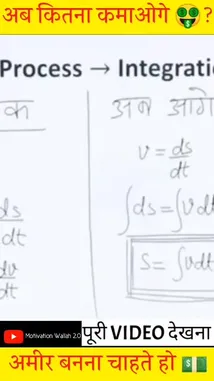 अब कितना कमाओगे 🤑?
Process → Integrati
क
अब आगे
v = ds/dt
ds/dt
∫ds = ∫vdt
dv/dt
S = ∫vdt
Motivation Wallah 2.0
पूरी VIDEO देखना
अमीर बनना चाहते हो 💵